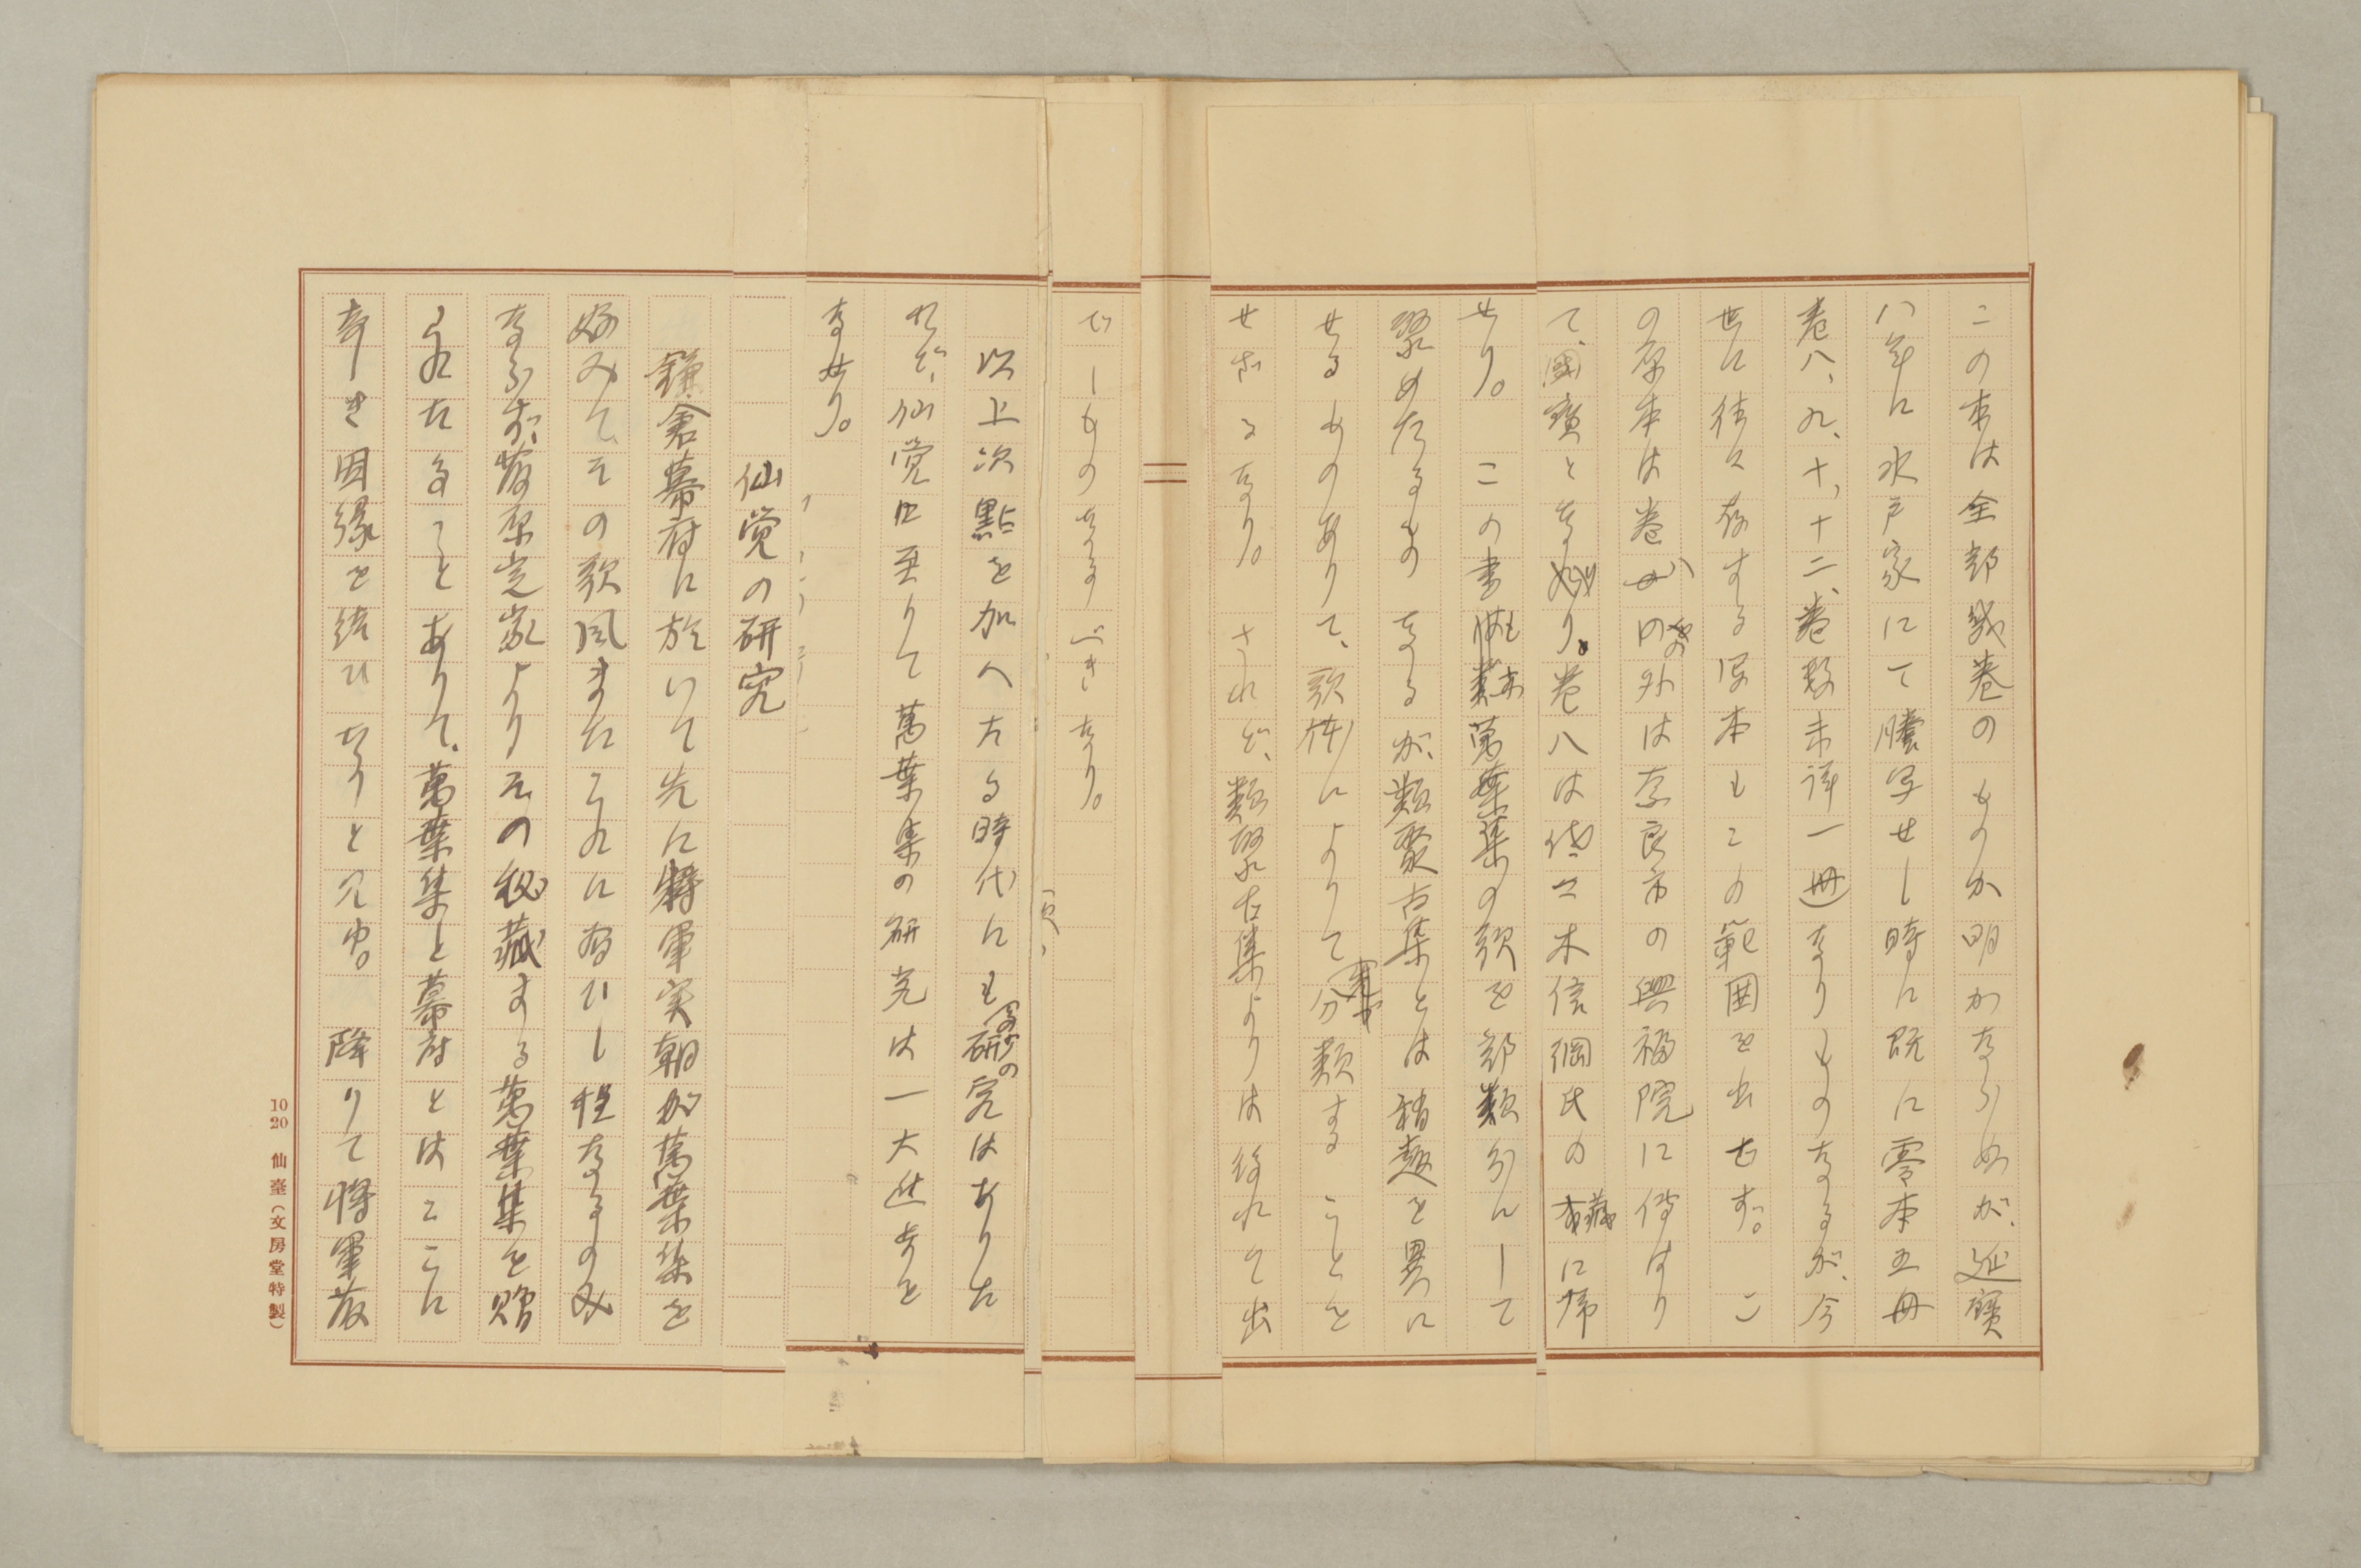 この本は全部幾巻のものか明かならぬが、延寶
八年に水戸家にて謄写せし時に既に零本五冊
巻八、九、十、十二、巻数未詳一冊)なりしものなるが、今
世に往々存する写本もこの範囲を出でず。こ
の原本は巻八の外は奈良市の興福院に傳はり
て、國寶となれり。巻八は佐々木信綱氏の藏に帰
せり。 この書も亦萬葉集の歌を部類分にして
聚めたるものなるが、類聚古集とは稍趣を異に
せるものありて、歌体によりて分類することを
せざるなり。されど、類聚古集よりは後れて出
でしものなるべきなり。
以上次點を加へたる時代にも多少の研究はありた
れど、仙覚に至りて萬葉集の研究は一大進歩を
なせり。
仙覚の研究
鎌倉幕府に於いて先に将軍実朝が萬葉集を
好みて、その歌風またこれに習ひし程なるのみ
ならず、藤原定家よりその秘藏する萬葉集を贈
られたることありて、萬葉集と幕府とはここに
奇しき因縁を結びたりと見ゆ。 降りて将軍藤
10 20 仙臺(文房堂特製)